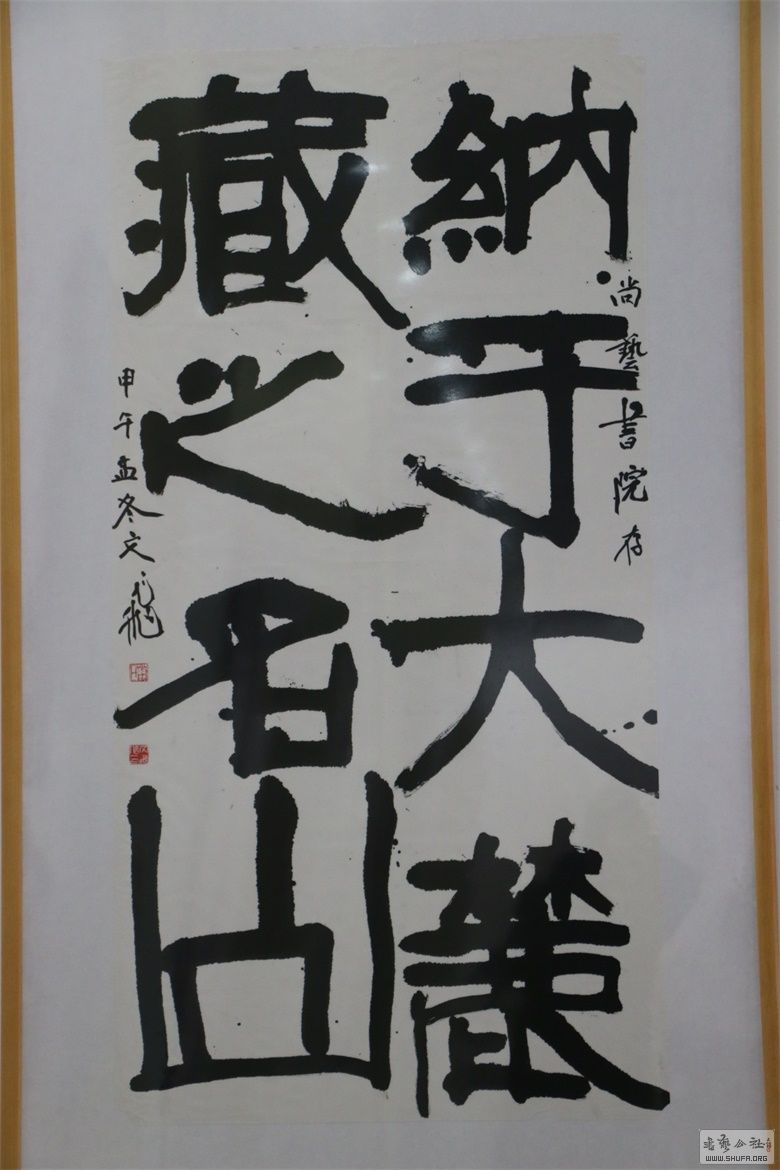 納于大麓
藏之名山
尚藝書院存
甲午孟冬文飛
书艺公社
WWW.SHUFA.ORG